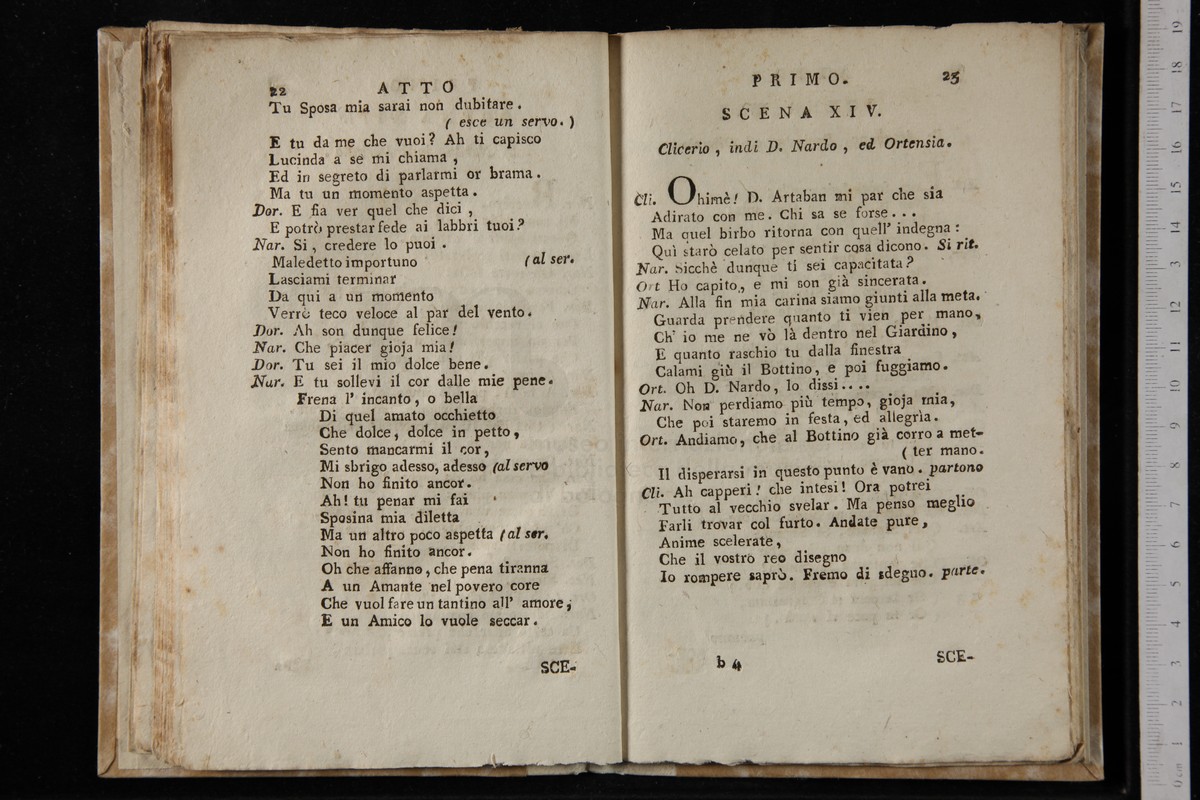 22 ATTO
Tu Sposa mia sarai non dubitare.
( esce un servo. )
E tu da me che vuoi? Ah ti capisco
Lucinda a se mi chiama,
Ed in segreto di parlarmi or brama.
Ma tu un momento aspetta.
Dor. E fia ver quel che dici,
E potrò prestar fede ai labbri tuoi?
Nar. Si, credere lo puoi.
Maledetto importuno (al ser.
Lasciami terminar
Da qui a un momento
Verrò teco veloce al par del vento.
Dor. Ah son dunque felice!
Nar. Che piacer gioja mia!
Dor. Tu sei il mio dolce bene.
Nar. E tu sollevi il cor dalle mie pene.
Frena l' incanto, o bella
Di quel amato occhietto
Che dolce, dolce in petto,
Sento mancarmi il cor,
Mi sbrigo adesso, adesso (al servo
Non ho finito ancor.
Ah! tu penar mi fai
Sposina mia diletta
Ma un altro poco aspetta (al ser.
Non ho finito ancor.
Oh che affanno, che pena tiranna
A un Amante nel povero core
Che vuol fare un tantino all' amore,
E un Amico lo vuole seccar.
SCE-
PRIMO. 23
SCENA XIV.
Clicerio, indi D. Nardo, ed Ortensia.
Cli. Ohimè! D. Artaban mi par che sia
Adirato con me. Chi sa se forse...
Ma quel birbo ritorna con quell' indegna:
Quì starò celato per sentir cosa dicono. Si rit.
Nar. Sicchè dunque ti sei capacitata?
Ort Ho capito, e mi son già sincerata.
Nar. Alla fin mia carina siamo giunti alla meta.
Guarda prendere quanto ti vien per mano,
Ch' io me ne vò là dentro nel Giardino,
E quanto raschio tu dalla finestra
Calami giù il Bottino, e poi fuggiamo.
Ort. Oh D. Nardo, lo dissi....
Nar. Non perdiamo più tempo, gioja mia,
Che poi staremo in festa, ed allegrìa.
Ort. Andiamo, che al Bottino già corro a met-
( ter mano.
Il disperarsi in questo punto è vano. partono
Cli. Ah capperi! che intesi! Ora potrei
Tutto al vecchio svelar. Ma penso meglio
Farli trovar col furto. Andate pure,
Anime scelerate,
Che il vostro reo disegno
Io rompere saprò. Fremo di sdegno. parte.
b 4 SCE-
0 cm 1 2 3 4 5 6 7 8 9 10 11 12 13 14 15 16 17 18 19